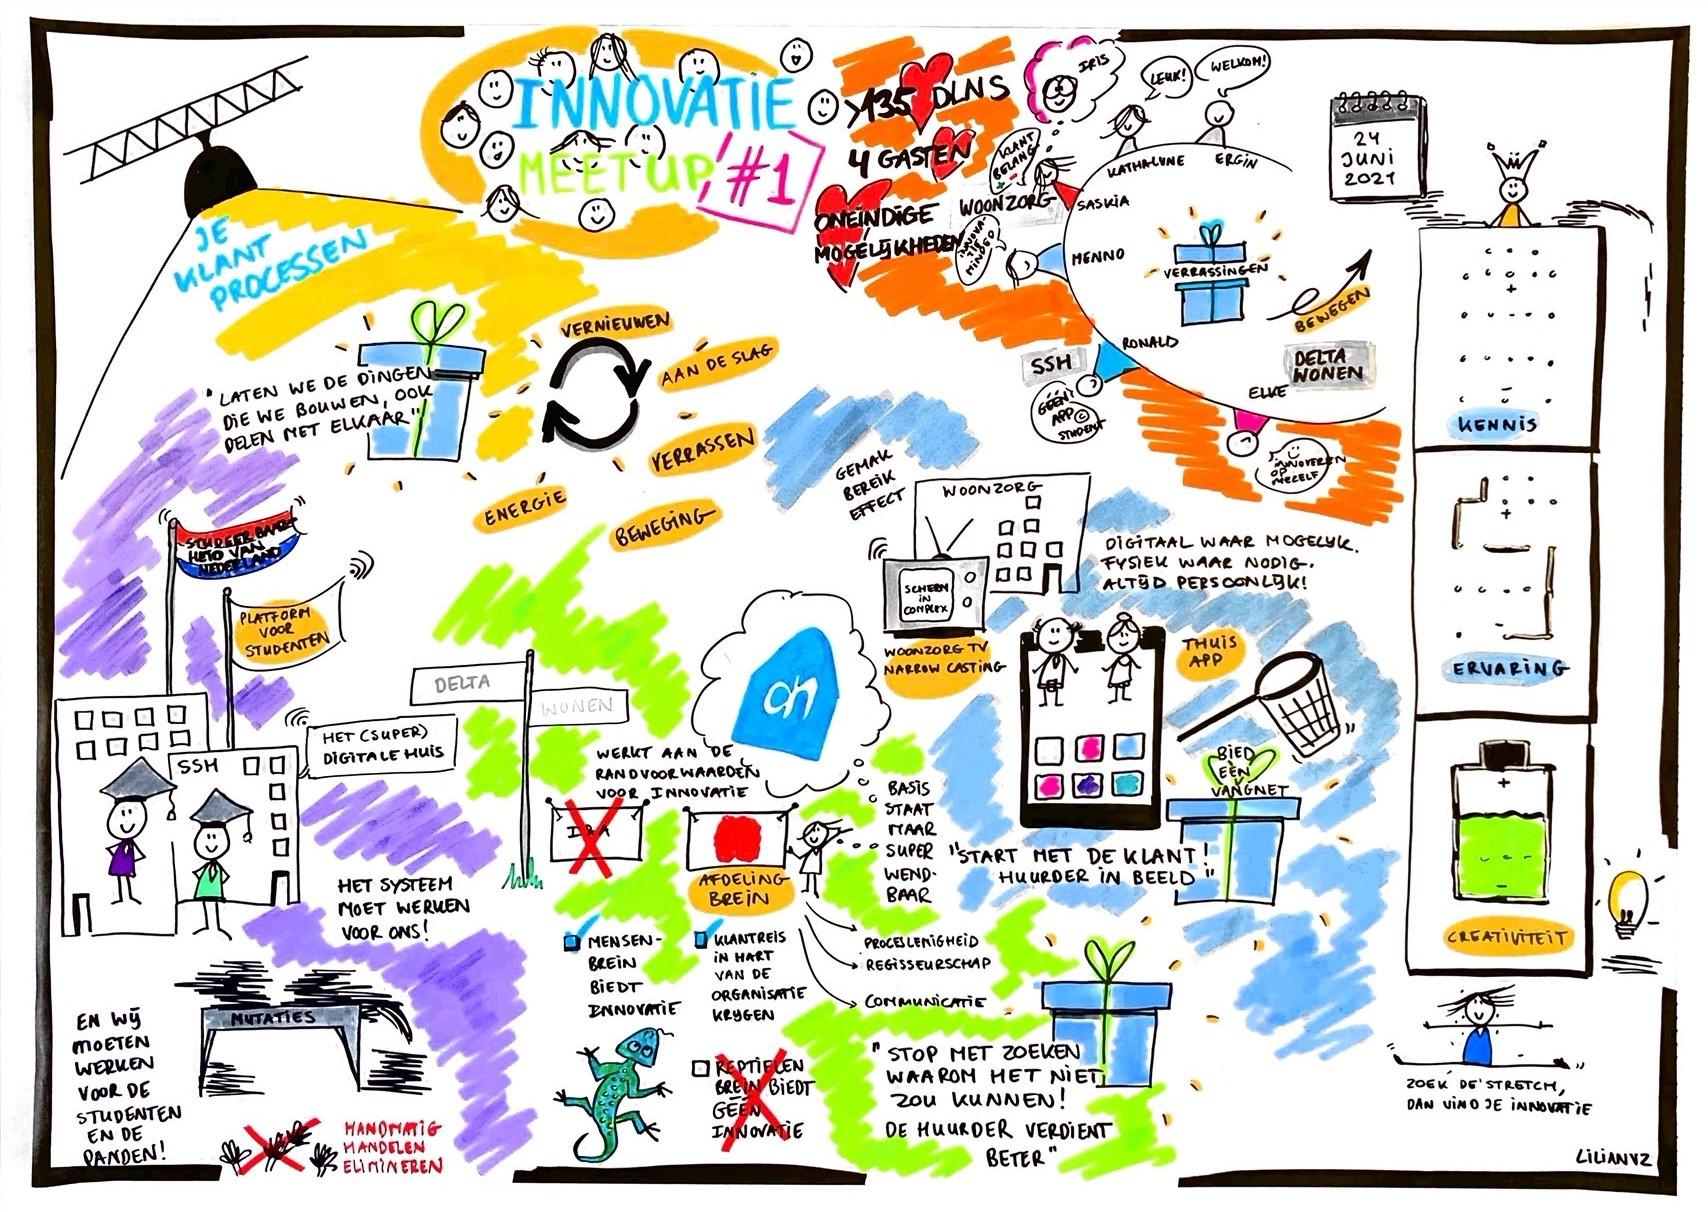 INNOVATIE
MEETUP! #1
>135 DLNS
4 GASTEN
ONEINDIGE
MOGELIJKHEDEN
IRIS
LEUK!
WELKOM!
KLANT
BELANG
+ -
WOONZORG
MENNO
KATHALYNE
ERGIN
SASKIA
VERRASSINGEN
BEWEGEN
RONALD
SSH
GÉÉN
APP
STUDENT
ELKE
DELTA
WONEN
INNOVEREN
OP
MEZELF
24
JUNI
2021
JE
KLANT
PROCESSEN
"LATEN WE DE DINGEN
DIE WE BOUWEN, OOK
DELEN MET ELKAAR"
VERNIEUWEN
AAN DE SLAG
VERRASSEN
BEWEGING
ENERGIE
STUDEERBAARHEID VAN
NEDERLAND
PLATFORM
VOOR
STUDENTEN
SSH
HET (SUPER)
DIGITALE HUIS
HET SYSTEEM
MOET WERKEN
VOOR ONS!
EN WIJ
MOETEN
WERKEN
VOOR DE
STUDENTEN
EN DE
PANDEN!
MUTATIES
HANDMATIG
HANDELEN
ELIMINEREN
DELTA
WONEN
WERKT AAN DE
RANDVOORWAARDEN
VOOR INNOVATIE
ah
AFDELING
BREIN
BASIS
STAAT
MAAR
SUPER
WEND-
BAAR
MENSEN-
BREIN
BIEDT
INNOVATIE
KLANTREIS
IN HART
VAN DE
ORGANISATIE
KRYGEN
REPTIELEN
BREIN BIEDT
GEEN
INNOVATIE
PROCESLENIGHEID
REGISSEURSCHAP
COMMUNICATIE
"STOP MET ZOEKEN
WAAROM HET NIET
ZOU KUNNEN!
DE HUURDER VERDIENT
BETER"
GEMAK
BEREIK
EFFECT
WOONZORG
SCHERM
IN
COMPLEX
WOONZORG TV
NARROW CASTING
DIGITAAL WAAR MOGELYK.
FYSIEK WAAR NODIG.
ALTIJD PERSOONLIJK!
THUIS
APP
BIED
EEN
VANGNET
"START MET DE KLANT!
HUURDER IN BEELD"
KENNIS
ERVARING
CREATIVITEIT
ZOEK DE 'STRETCH,
DAN VIND JE INNOVATIE
LILIANVZ